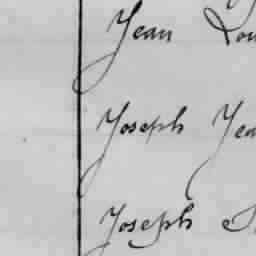 Jean Lou
Joseph Jea
Joseph